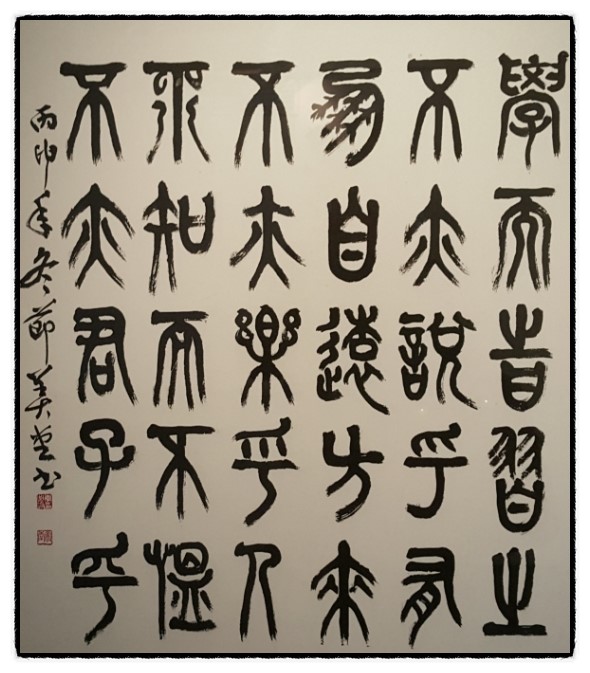 學而旹習之
不亦說乎有
朋自遠方來
不亦樂乎人
不知而不慍
不亦君子乎
丙申年冬節美堂書